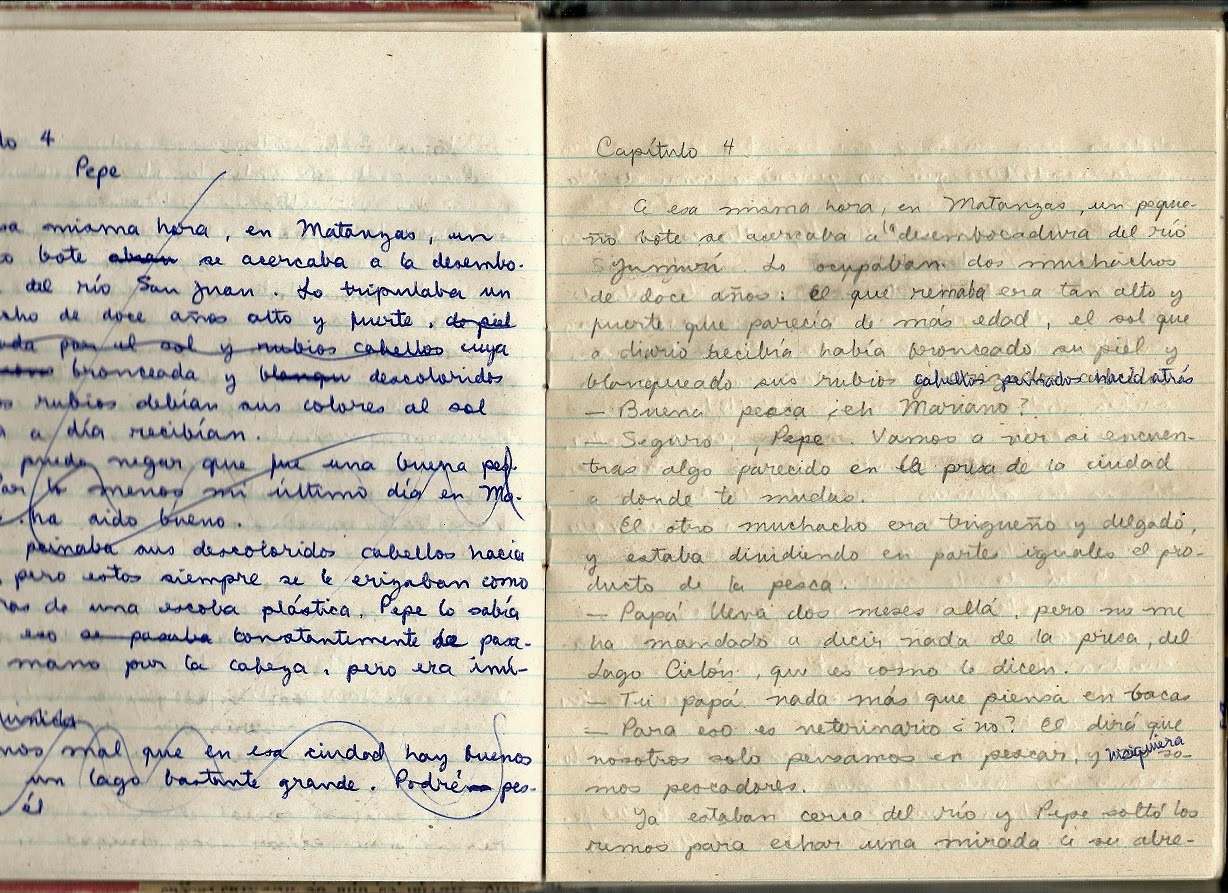 lo 4
Pepe
sa misma hora, en Matanzas, un
o bote se acercaba a la desembo-
del río San Juan. Lo tripulaba un
cho de doce años alto y fuerte, de piel
ada por el sol y rubios cabellos cuya
bronceada y blanqu descoloridos
os rubios debían sus colores al sol
a a día recibían.
puede negar que fue una buena pes-
Por lo menos mi último día en Ma-
ha sido bueno.
peinaba sus descoloridos cabellos hacia
, pero estos siempre se le erizaban como
ras de una escoba plástica. Pepe lo sabía
eso se pasaba constantemente se pasa-
mano por la cabeza, pero era inú-
nos mal que en esa ciudad hay buenos
un lago bastante grande. Podré pes-
él
Capítulo 4
A esa misma hora, en Matanzas, un peque-
ño bote se acercaba a la desembocadura del río
Yumurí. Lo ocupaban dos muchachos
de doce años: el que remaba era tan alto y
fuerte que parecía de más edad, el sol que
a diario recibía había bronceado su piel y
blanqueado sus rubios cabellos peinados hacia atrás
— Buena pesca ¿eh Mariano?
— Seguro, Pepe. Vamos a ver si encuen-
tras algo parecido en la presa de la ciudad
a donde te mudas.
El otro muchacho era trigueño y delgado,
y estaba dividiendo en partes iguales el pro-
ducto de la pesca.
— Papá lleva dos meses allá, pero no me
ha mandado a decir nada de la presa, del
Lago Ciclón, que es como le dicen.
— Tu papá nada más que piensa en bacas
— Para eso es veterinario ¿no? El dirá que
nosotros solo pensamos en pescar, y ni siquiera so-
mos pescadores.
Ya estaban cerca del río y Pepe soltó los
remos para echar una mirada a su alre-